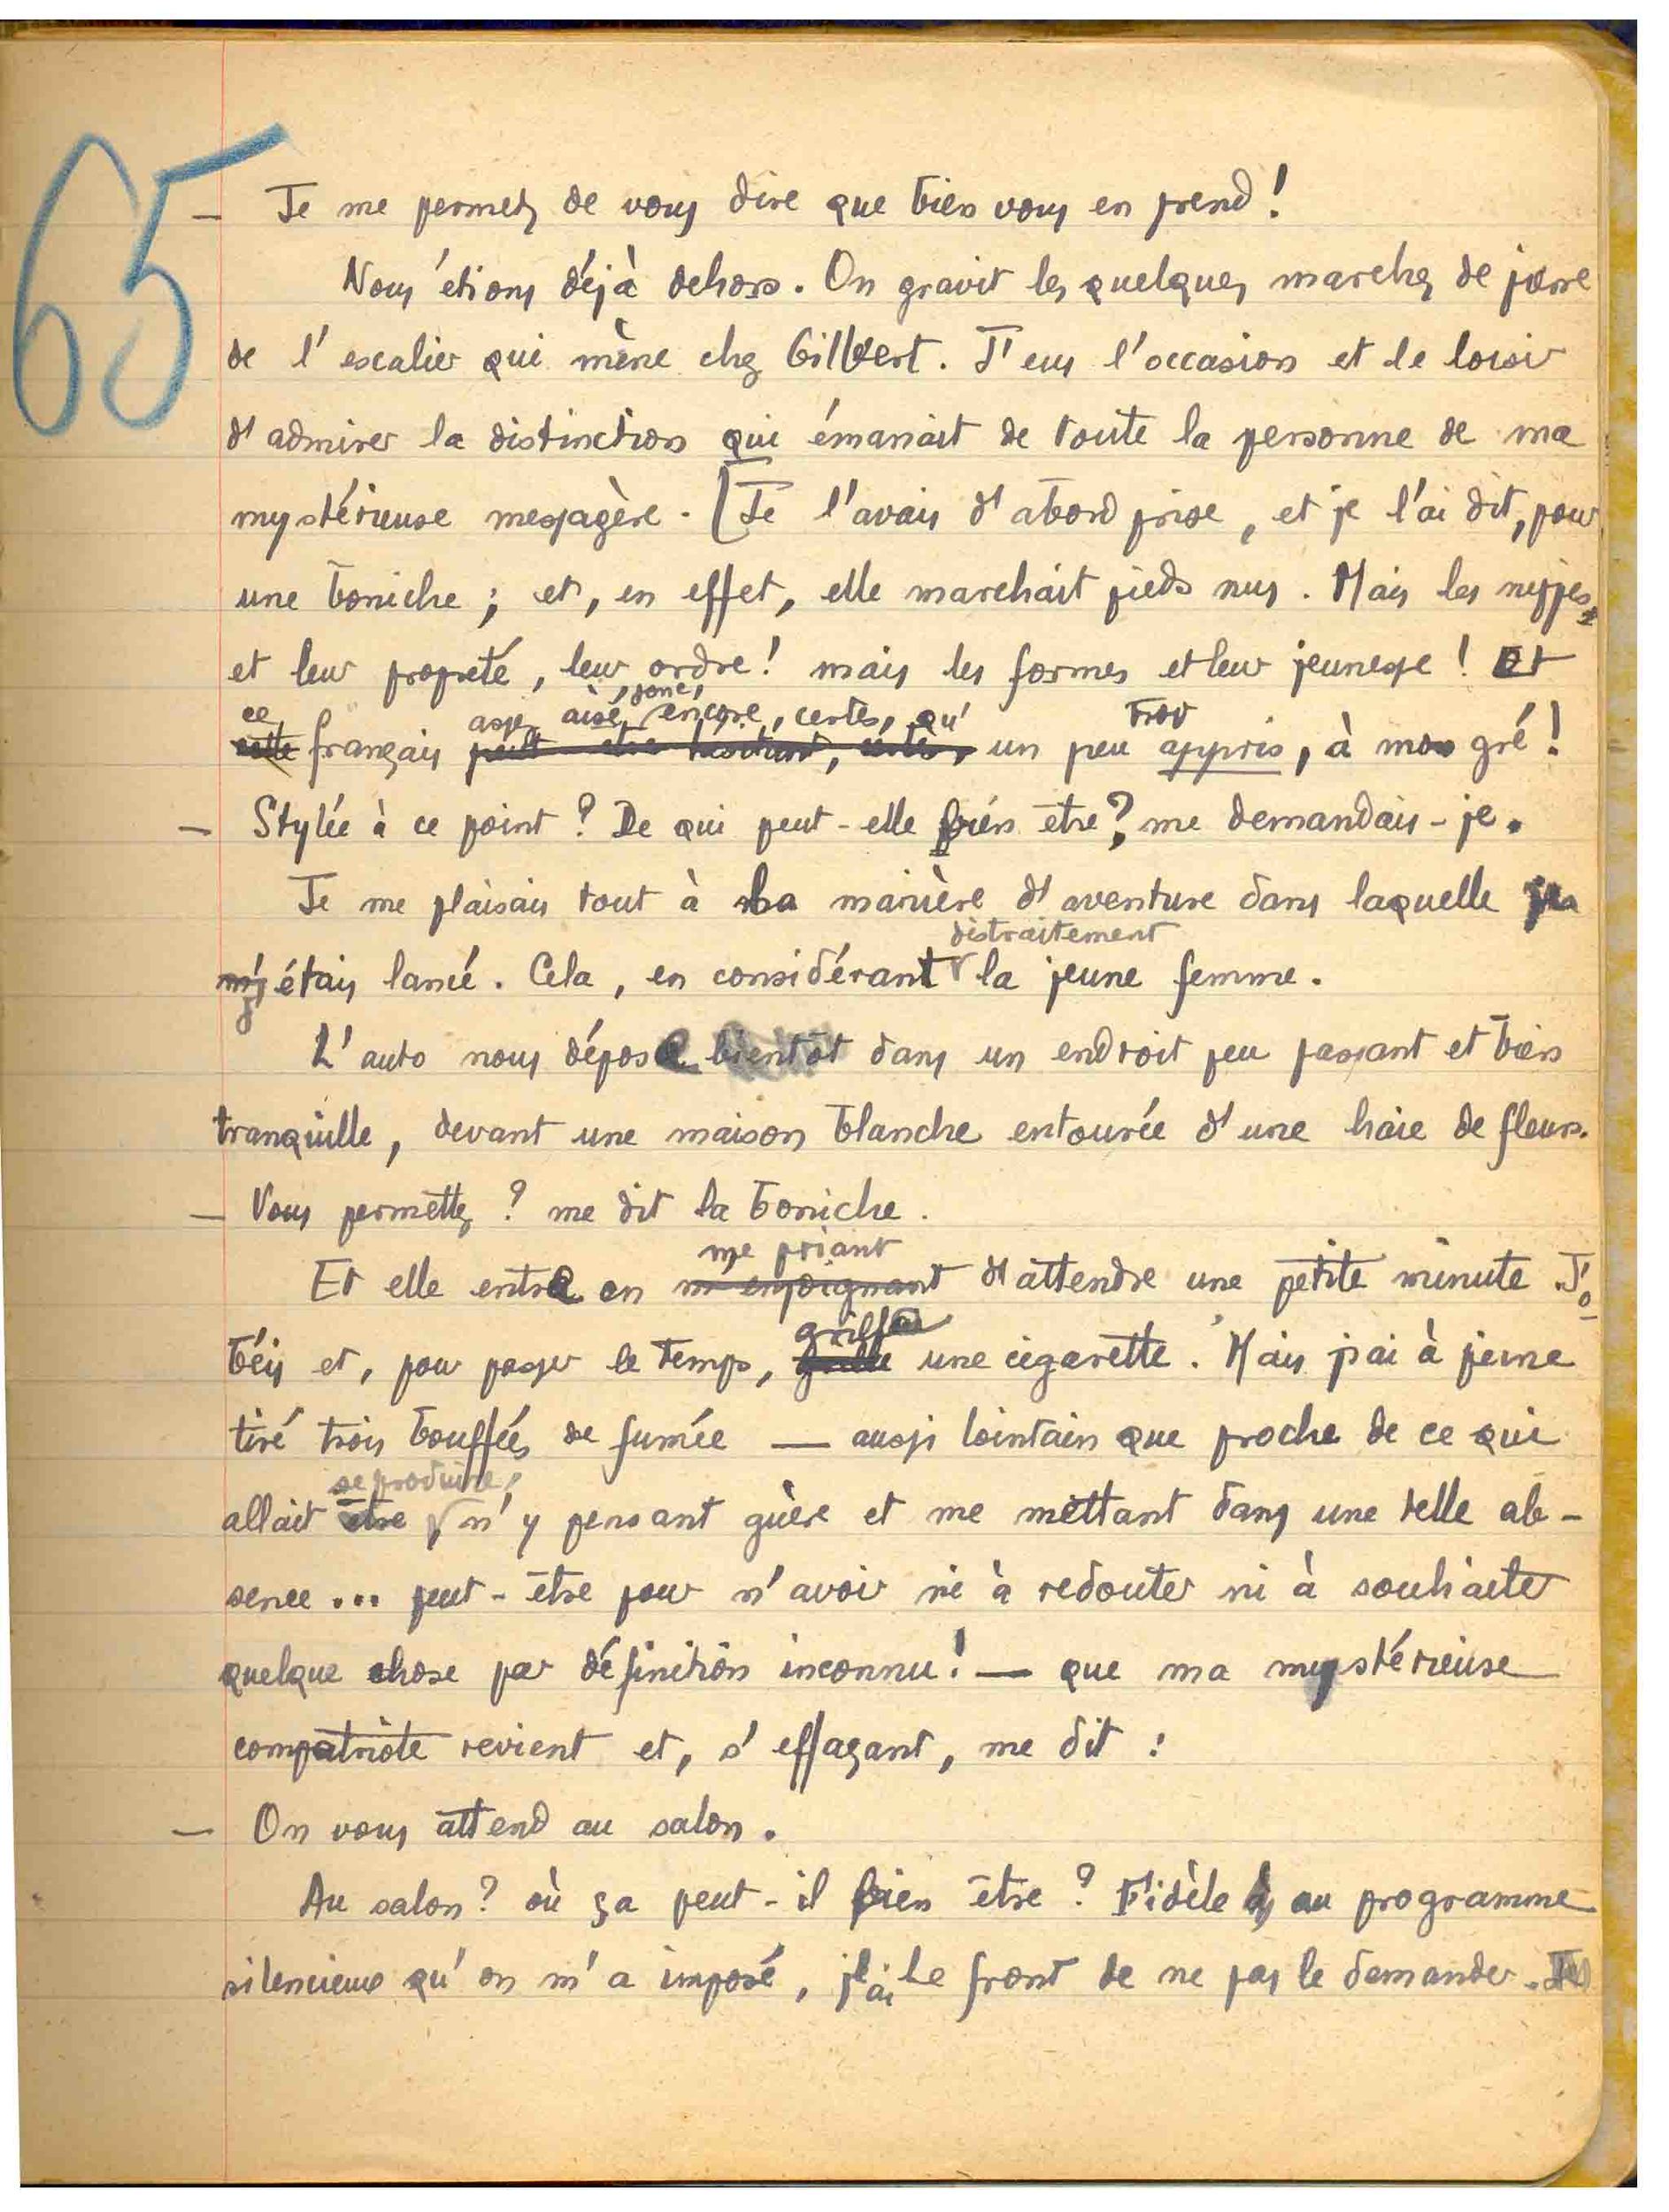 65
— Je me permets de vous dire que bien vous en prend !
Nous étions déjà dehors. On gravit les quelques marches de pierre
de l'escalier qui mène chez Gilbert. J'eus l'occasion et le loisir
d'admirer la distinction qui émanait de toute la personne de ma
mystérieuse messagère. [Je l'avais d'abord prise, et je l'ai dit, pour
une boniche ; et, en effet, elle marchait pieds nus. Mais les nippes
et leur propreté, leur ordre ! mais les formes et leur jeunesse ! Et
ce assez aisé, encore, certes, qu' trop
cette français peut-être hésitant, certes, un peu appris, à mon gré !
— Stylée à ce point ? De qui peut-elle bien être ? me demandais-je.
Je me plaisais tout à la manière d'aventure dans laquelle
distraitement
j'étais lancé. Cela, en considérant la jeune femme.
L'auto nous dépose bientôt dans un endroit peu passant et bien
tranquille, devant une maison blanche entourée d'une haie de fleurs.
— Vous permettez ? me dit la boniche.
me priant
Et elle entre en m'enjoignant d'attendre une petite minute. J'o
griffe
béis et, pour passer le temps, grille une cigarette. Mais j'ai à peine
tiré trois bouffées de fumée — aussi lointain que proche de ce qui
se produire,
allait être n'y pensant guère et me mettant dans une telle ab-
sence... peut-être pour n'avoir ni à redouter ni à souhaiter
quelque chose par définition inconnu ! — que ma mystérieuse
compatriote revient et, s'effaçant, me dit :
— On vous attend au salon.
Au salon ? où ça peut-il bien être ? Fidèle au programme
silencieux qu'on m'a imposé, j'ai le front de ne pas le demander.